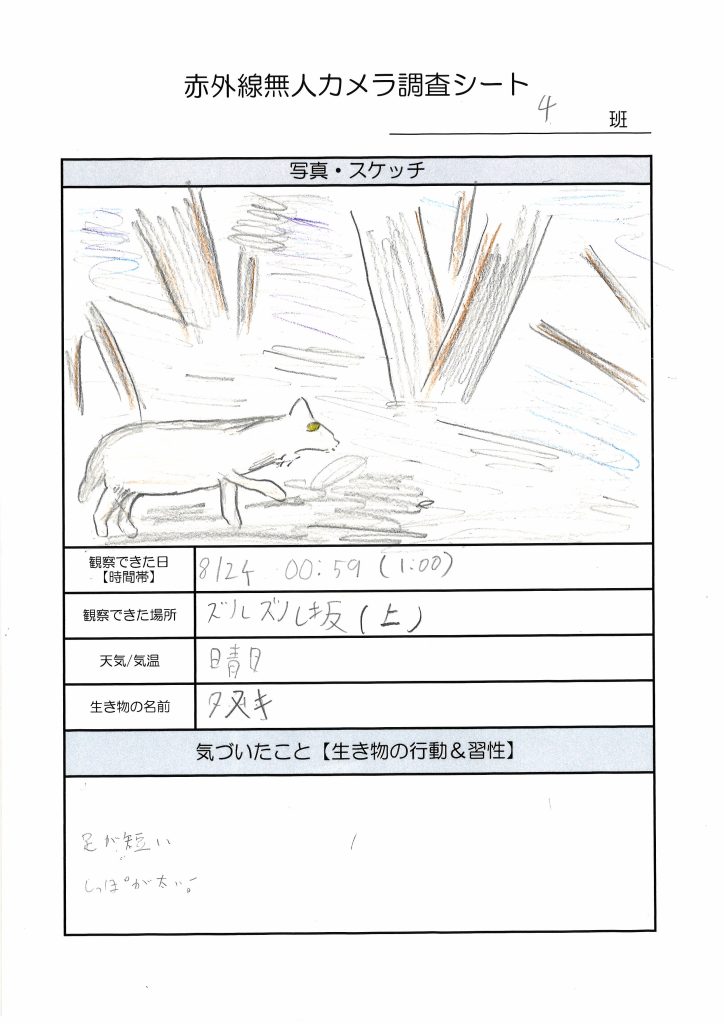 赤外線無人カメラ調査シート
4 班
写真・スケッチ
観察できた日
【時間帯】
8/24 00:59 (1:00)
観察できた場所
ズルズル坂(上)
天気/気温
晴日
生き物の名前
タヌキ
気づいたこと【生き物の行動&習性】
足が短い
しっぽが太い。